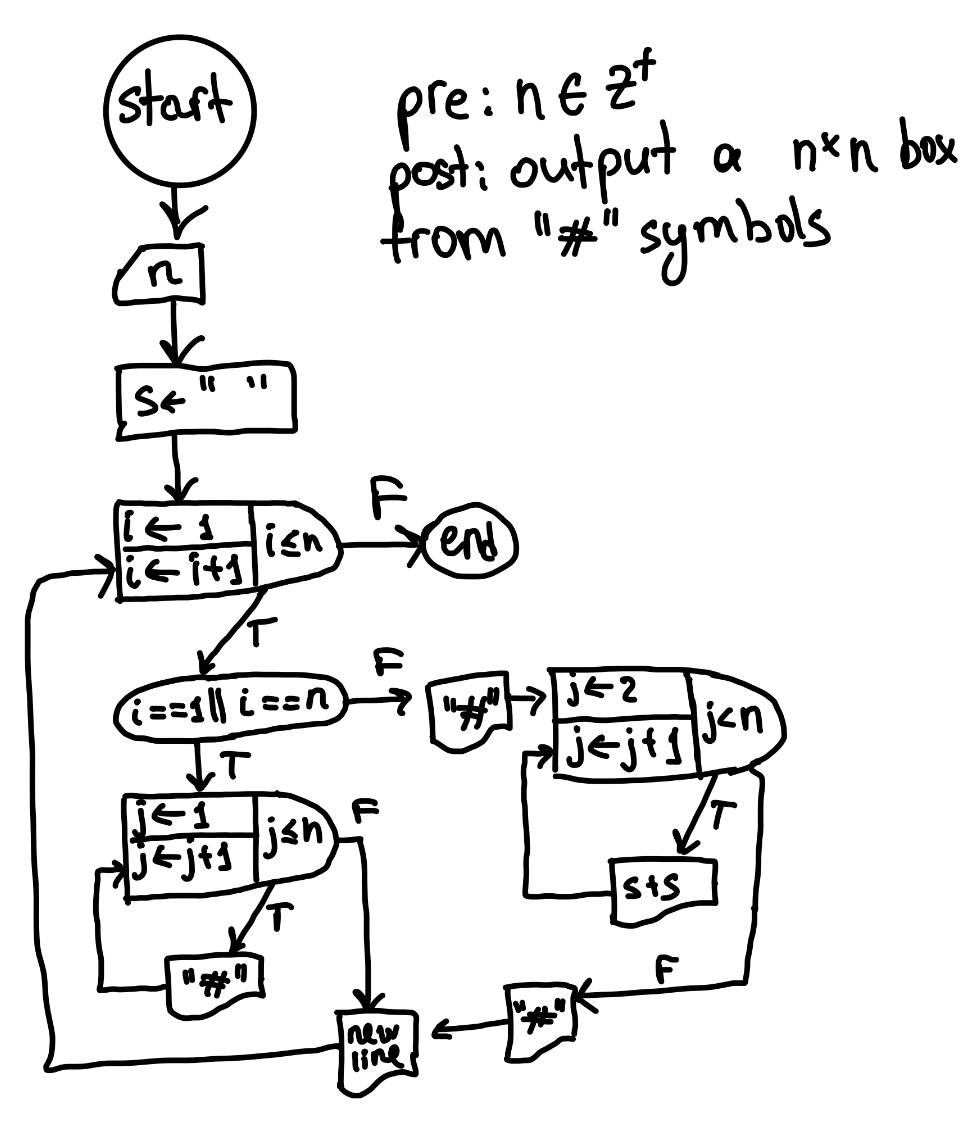 start
pre: n ∈ Z⁺
post: output a n*n box
from "#" symbols
n
s← " "
i ← 1
i ← i+1
i≤n
F
end
T
i==1|| i==n
F
"#"
j←2
j←j+1
j<n
T
j←1
j←j+1
j≤n
F
T
s+s
T
"#"
F
"#"
new
line